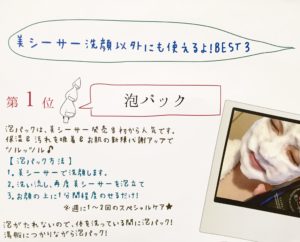 美シーサー洗顔以外にも使えるよ！BEST3
第1位
泡パック
泡パックは、美シーサー発売当初から人気です。
保湿&汚れを吸着&お肌の新陳代謝アップで
ツルッツル♪
【泡パック方法】
1、美シーサーで洗顔します。
2、洗い流し、再度美シーサーを泡立て
3、お顔の上に1分間程度のせるだけ！
※週に1〜2回のスペシャルケア★
泡がたれないので、体を洗っている間に泡パック！
湯船につかりながら泡パック！